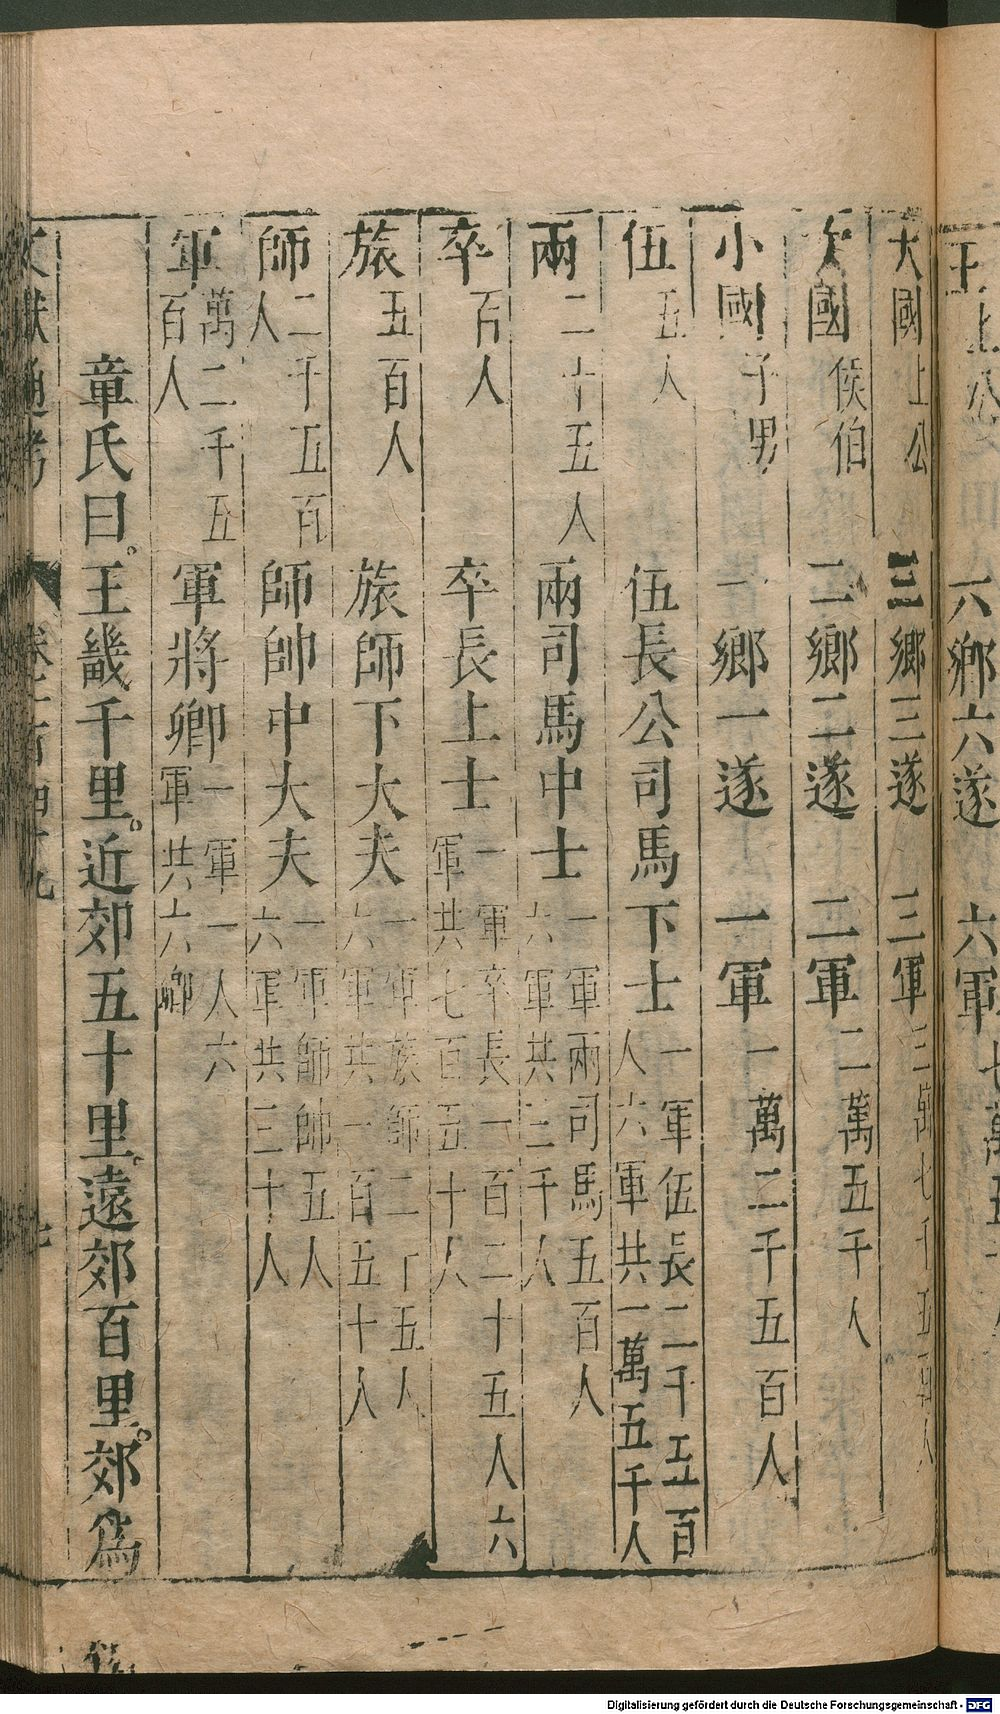 王上公 六鄉六遂 六軍
大國上公 三鄉三遂 三軍三萬七千五百人
次國侯伯 二鄉二遂 二軍二萬五千人
小國子男 一鄉一遂 一軍一萬二千五百人
伍五人 伍長公司馬下士一軍伍長二千五百人六軍共一萬五千人
兩二十五人 兩司馬中士一軍兩司馬五百人六軍共三千人
卒百人 卒長上士一軍卒長一百二十五人六軍共七百五十人
旅五百人 旅師下大夫一軍族師二十五人六軍共一百五十人
師二千五百人 師帥中大夫一軍師帥五人六軍共三十人
軍萬二千五百人 軍將卿一軍一人六軍共六卿
章氏曰。王畿千里。近郊五十里。遠郊百里。郊爲
文獻通考 卷
Digitalisierung gefördert durch die Deutsche Forschungsgemeinschaft - DFG